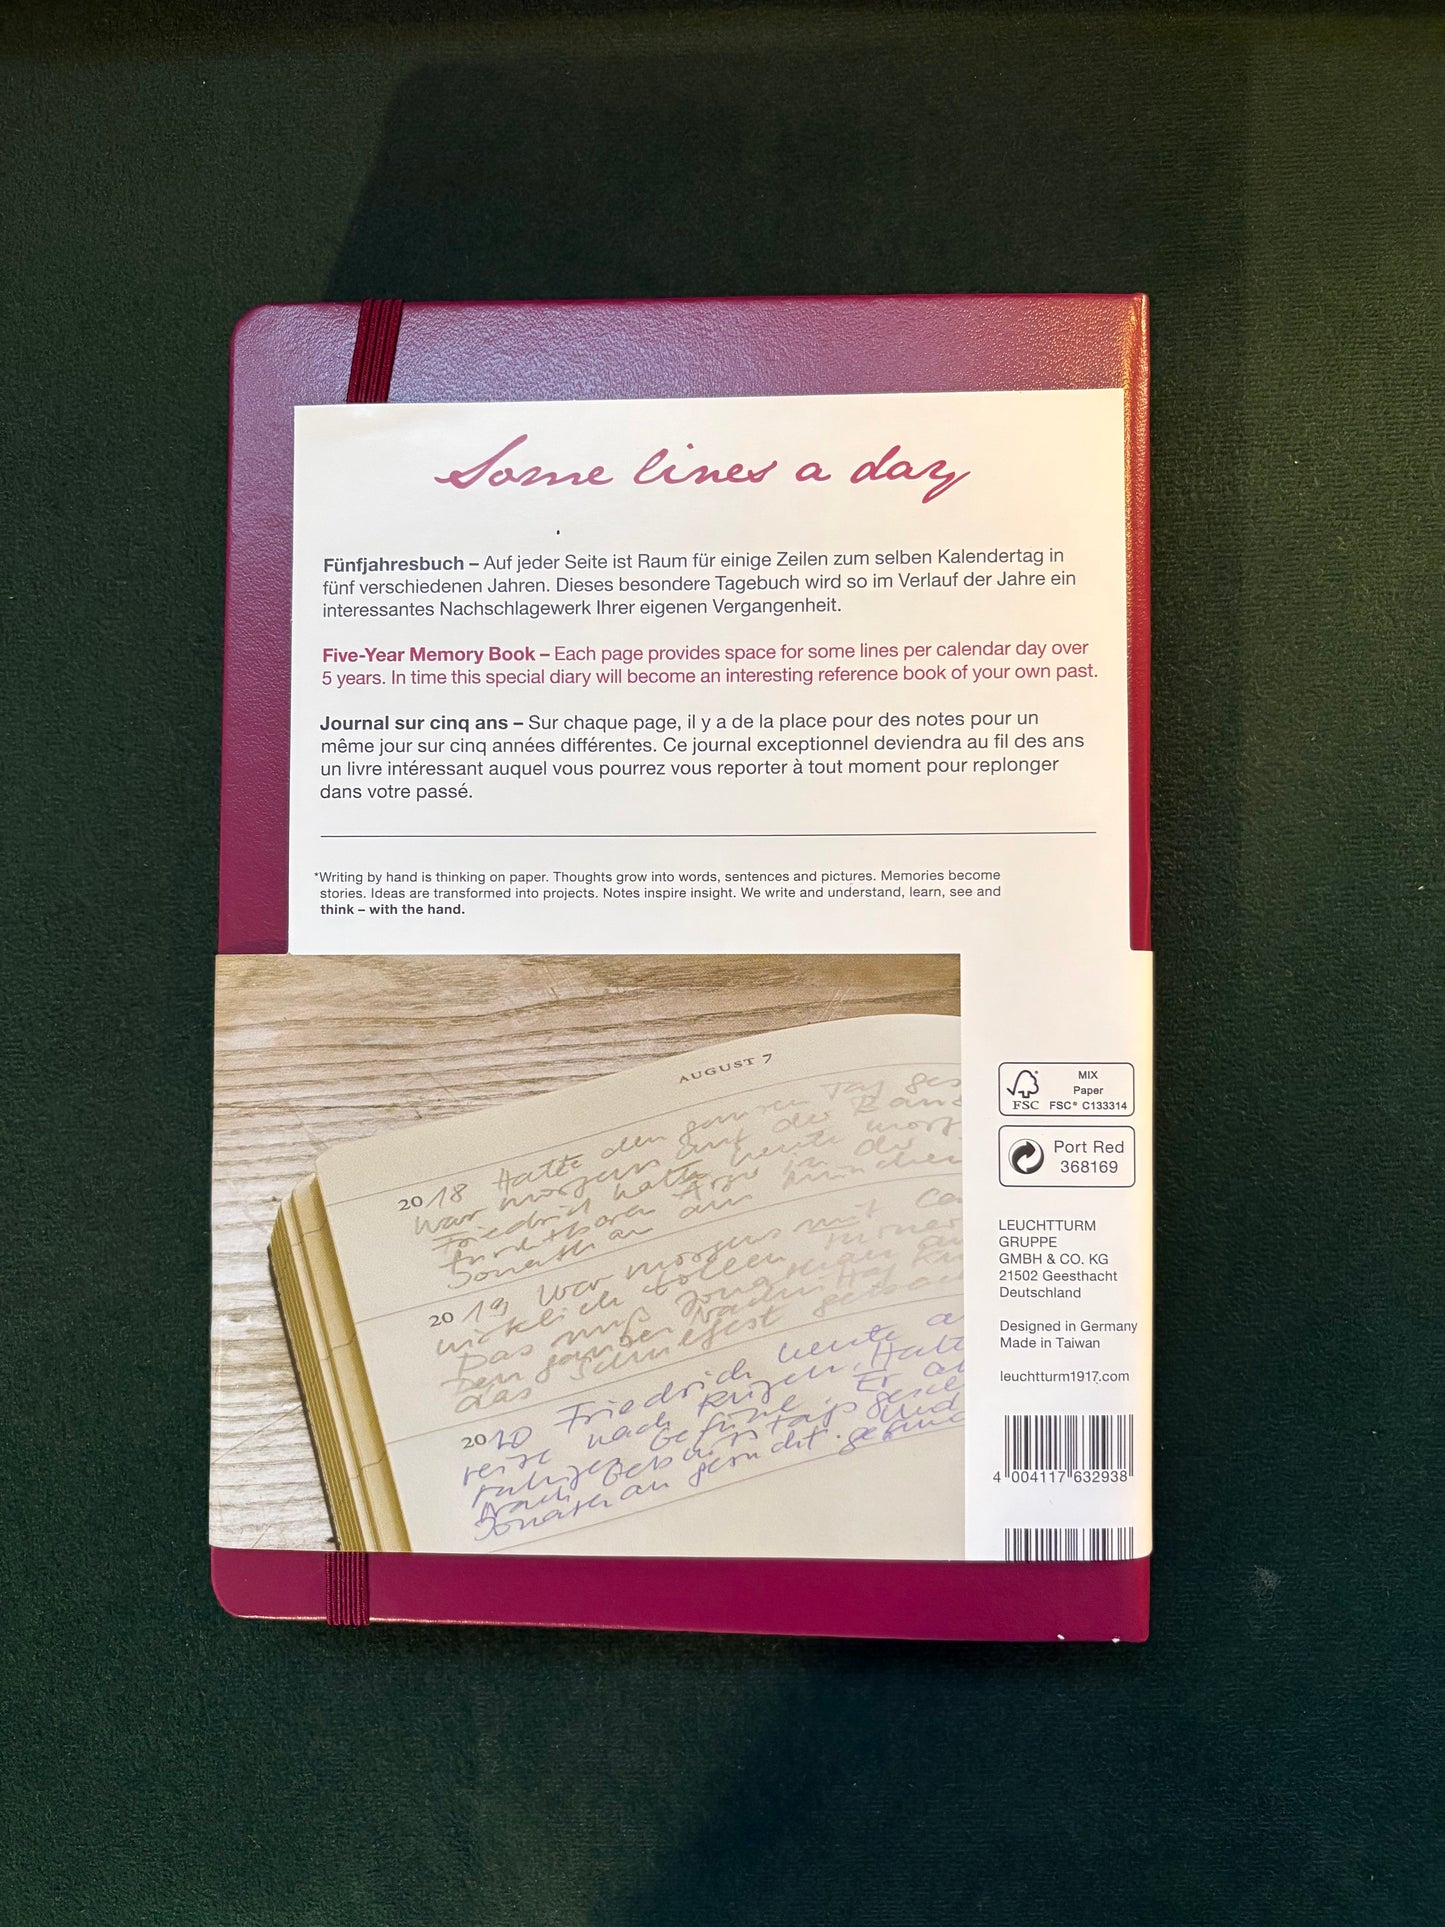 Some lines a day
Fünfjahresbuch – Auf jeder Seite ist Raum für einige Zeilen zum selben Kalendertag in
fünf verschiedenen Jahren. Dieses besondere Tagebuch wird so im Verlauf der Jahre ein
interessantes Nachschlagewerk Ihrer eigenen Vergangenheit.
Five-Year Memory Book – Each page provides space for some lines per calendar day over
5 years. In time this special diary will become an interesting reference book of your own past.
Journal sur cinq ans – Sur chaque page, il y a de la place pour des notes pour un
même jour sur cinq années différentes. Ce journal exceptionnel deviendra au fil des ans
un livre intéressant auquel vous pourrez vous reporter à tout moment pour replonger
dans votre passé.
*Writing by hand is thinking on paper. Thoughts grow into words, sentences and pictures. Memories become
stories. Ideas are transformed into projects. Notes inspire insight. We write and understand, learn, see and
think – with the hand.
AUGUST 7
2018 Hatte den ganzen Tag
war morgens auf der
Friedrich hatte heute
Jonathan am
2019 War morgens mit
wirklich tollen
Das muß Jonathan
Den ganzen Nachmittag
das Schulfest
2020 Friedrich heute
reise nach Rügen. Hatte
Er
nach
Jonathan gesucht.
MIX
Paper
FSC FSC® C133314
Port Red
368169
LEUCHTTURM
GRUPPE
GMBH & CO. KG
21502 Geesthacht
Deutschland
Designed in Germany
Made in Taiwan
leuchtturm1917.com
4 004117 632938